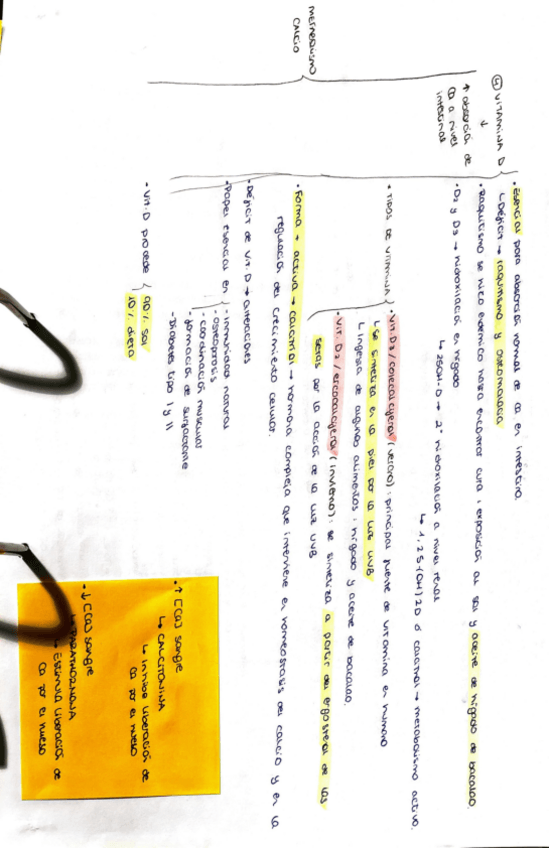 METABOLISMO
CALCIO
④ VITAMINA D
↓
↑ absorción de
Ca a nivel
intestinal
· Esencial para absorción normal de Ca en intestino
↳ Déficit → raquitismo y osteomalacia
· Raquitismo se hizo endémico hasta encontrar cura: exposición al sol y aceite de hígado de bacalao.
· D2 y D3 → hidroxilación en hígado
↳ 25OH-D → 2ª hidroxilación a nivel renal
↳ 1,25-(OH)2D ó calcitriol → metabolismo activo.
· TIPOS DE VITAMINA
· Vit. D3 / colecalciferol (verano): principal fuente de vitamina en humano
↳ se sintetiza en la piel por la luz UVB
↳ Ingesta de algunos alimentos: hígado y aceite de bacalao.
· Vit. D2 / ergocalciferol (invierno): se sintetiza a partir del ergosterol de las
setas por la acción de la luz UVB
· Forma + activa → calcitriol → hormona compleja que interviene en homeostasis del calcio y en la
regulación del crecimiento celular.
· Déficit de Vit. D → alteraciones
· Papel esencial en
· Inmunidad natural
· osteoporosis
· coordinación muscular
· formación de surfactante
· Diabetes tipo I y II
· Vit. D procede
90% sol
10% dieta
· ↑ [Ca] sangre
↳ CALCITONINA
↳ Inhibe liberación de
Ca por el hueso
· ↓ [Ca] sangre
↳ PARATHORMONA
↳ Estimula liberación de
Ca por el hueso